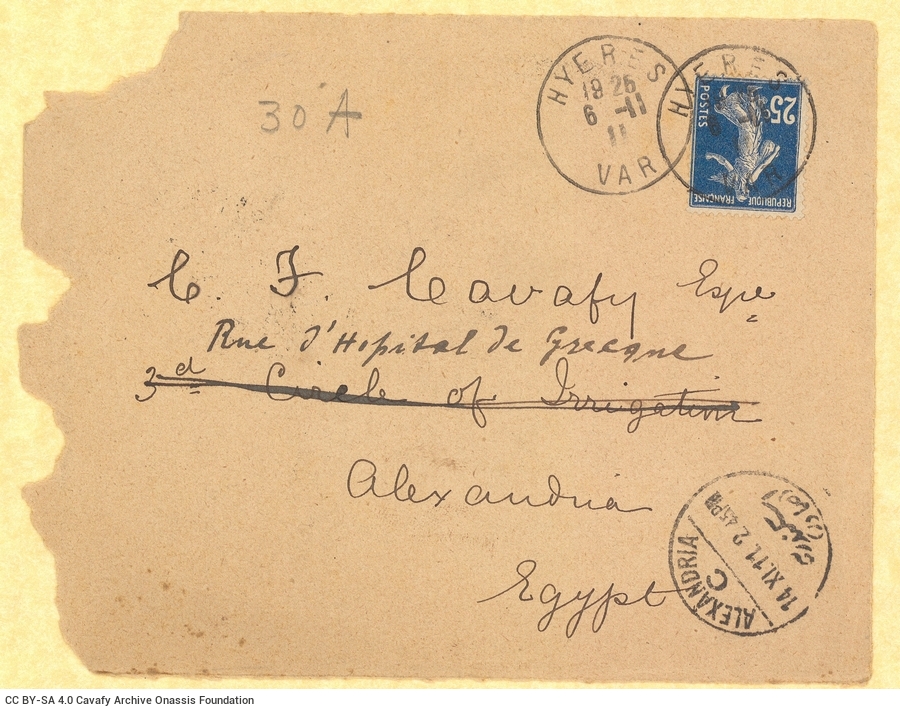 30 A
HYERES
19 25
6 -11
11
VAR
HYERES
POSTES
25c
REPUBLIQUE FRANÇAISE
C. F. Cavafy Esqre
Rue d'Hopital de Grecque
3rd Circle of Irrigation
Alexandria
Egypt
ALEXANDRIA
C
14 XI.11. 2.45PM
CC BY-SA 4.0 Cavafy Archive Onassis Foundation